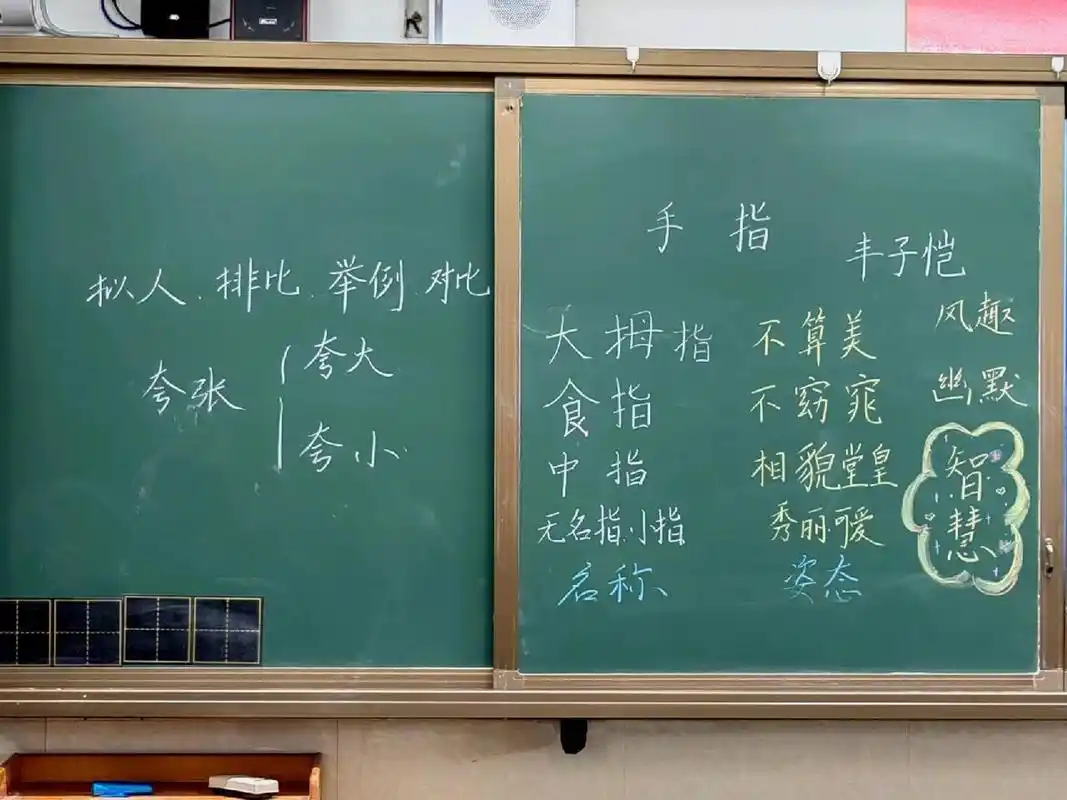 拟人、排比、举例、对比
夸张
夸大
夸小
手 指
丰子恺
大拇指 不算美
食指 不窈窕
中指 相貌堂皇
无名指、小指 秀丽可爱
名称 姿态
风趣
幽默
智慧